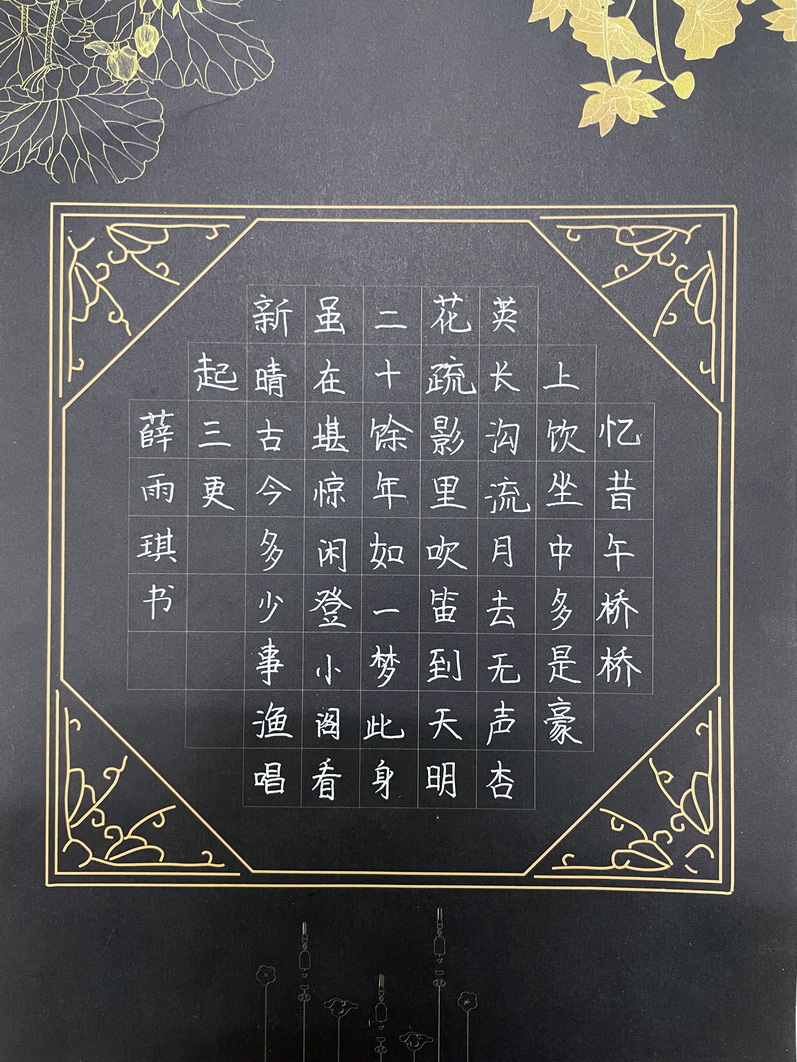 忆昔午桥桥
上饮坐中多是豪
英长沟流月去无声杏
花疏影里吹笛到天明
二十馀年如一梦此身
虽在堪惊闲登小阁看
新晴古今多少事渔唱
起三更
薛雨琪书